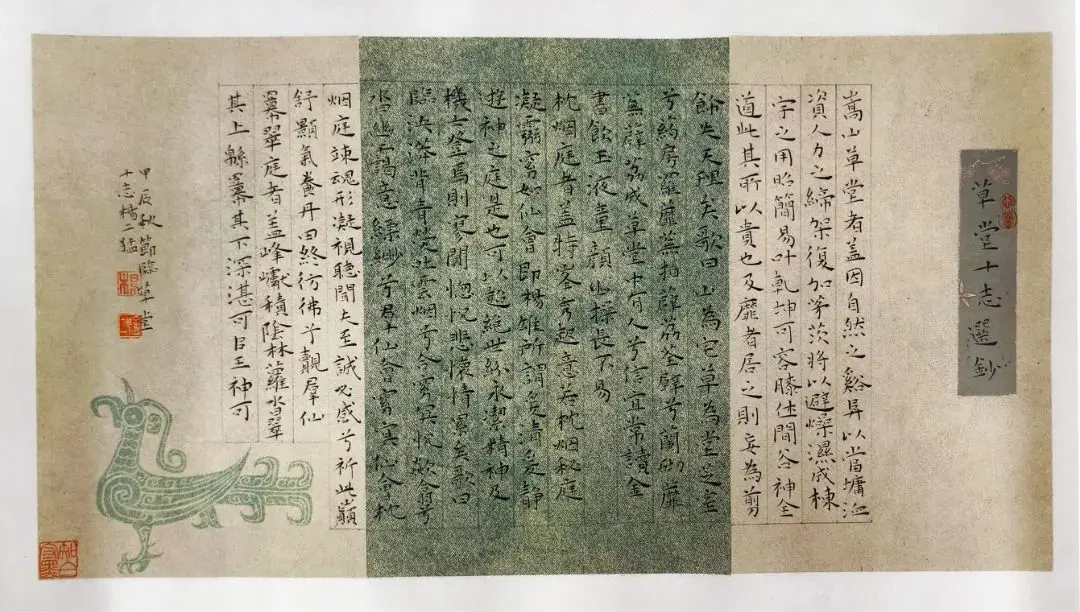 草堂十志選鈔
嵩山草堂者蓋因自然之谿阜以當墉洫
資人力之締架復加茅茨將以避燥濕成棟
宇之用昭簡易叶乾坤可容膝休閒谷神全
道此其所以貴也及靡者居之則妄為剪
飾失天理矣歌曰山為宅草為堂芝
兮葯房羅蘼蕪拍薜荔荃壁兮蘭砌蘼
蕪薜荔成草堂中有人兮信宜常讀金
書飲玉液童顏幽操長不易
枕烟庭者蓋特峯秀起意若枕烟秘庭
凝虛窅如仙會即楊雄所謂爰清爰靜
遊神之庭是也可以超絕世紛永潔精神及
機士登焉則寥闃惚怳悲懷情累矣歌曰
臨泱漭背青熒吐雲烟兮合窅冥怳欻翕兮
沓幽靄意縹緲兮羣仙會窅冥仙會枕
烟庭竦魂形凝視聽聞夫至誠必感兮祈此巔
舒顥氣養丹田終彷彿兮覯羣仙
冪翠庭者蓋峰巘積陰林蘿沓翠
其上緜冪其下深湛可以王神可
甲辰秋節臨草堂
十志楊二猛